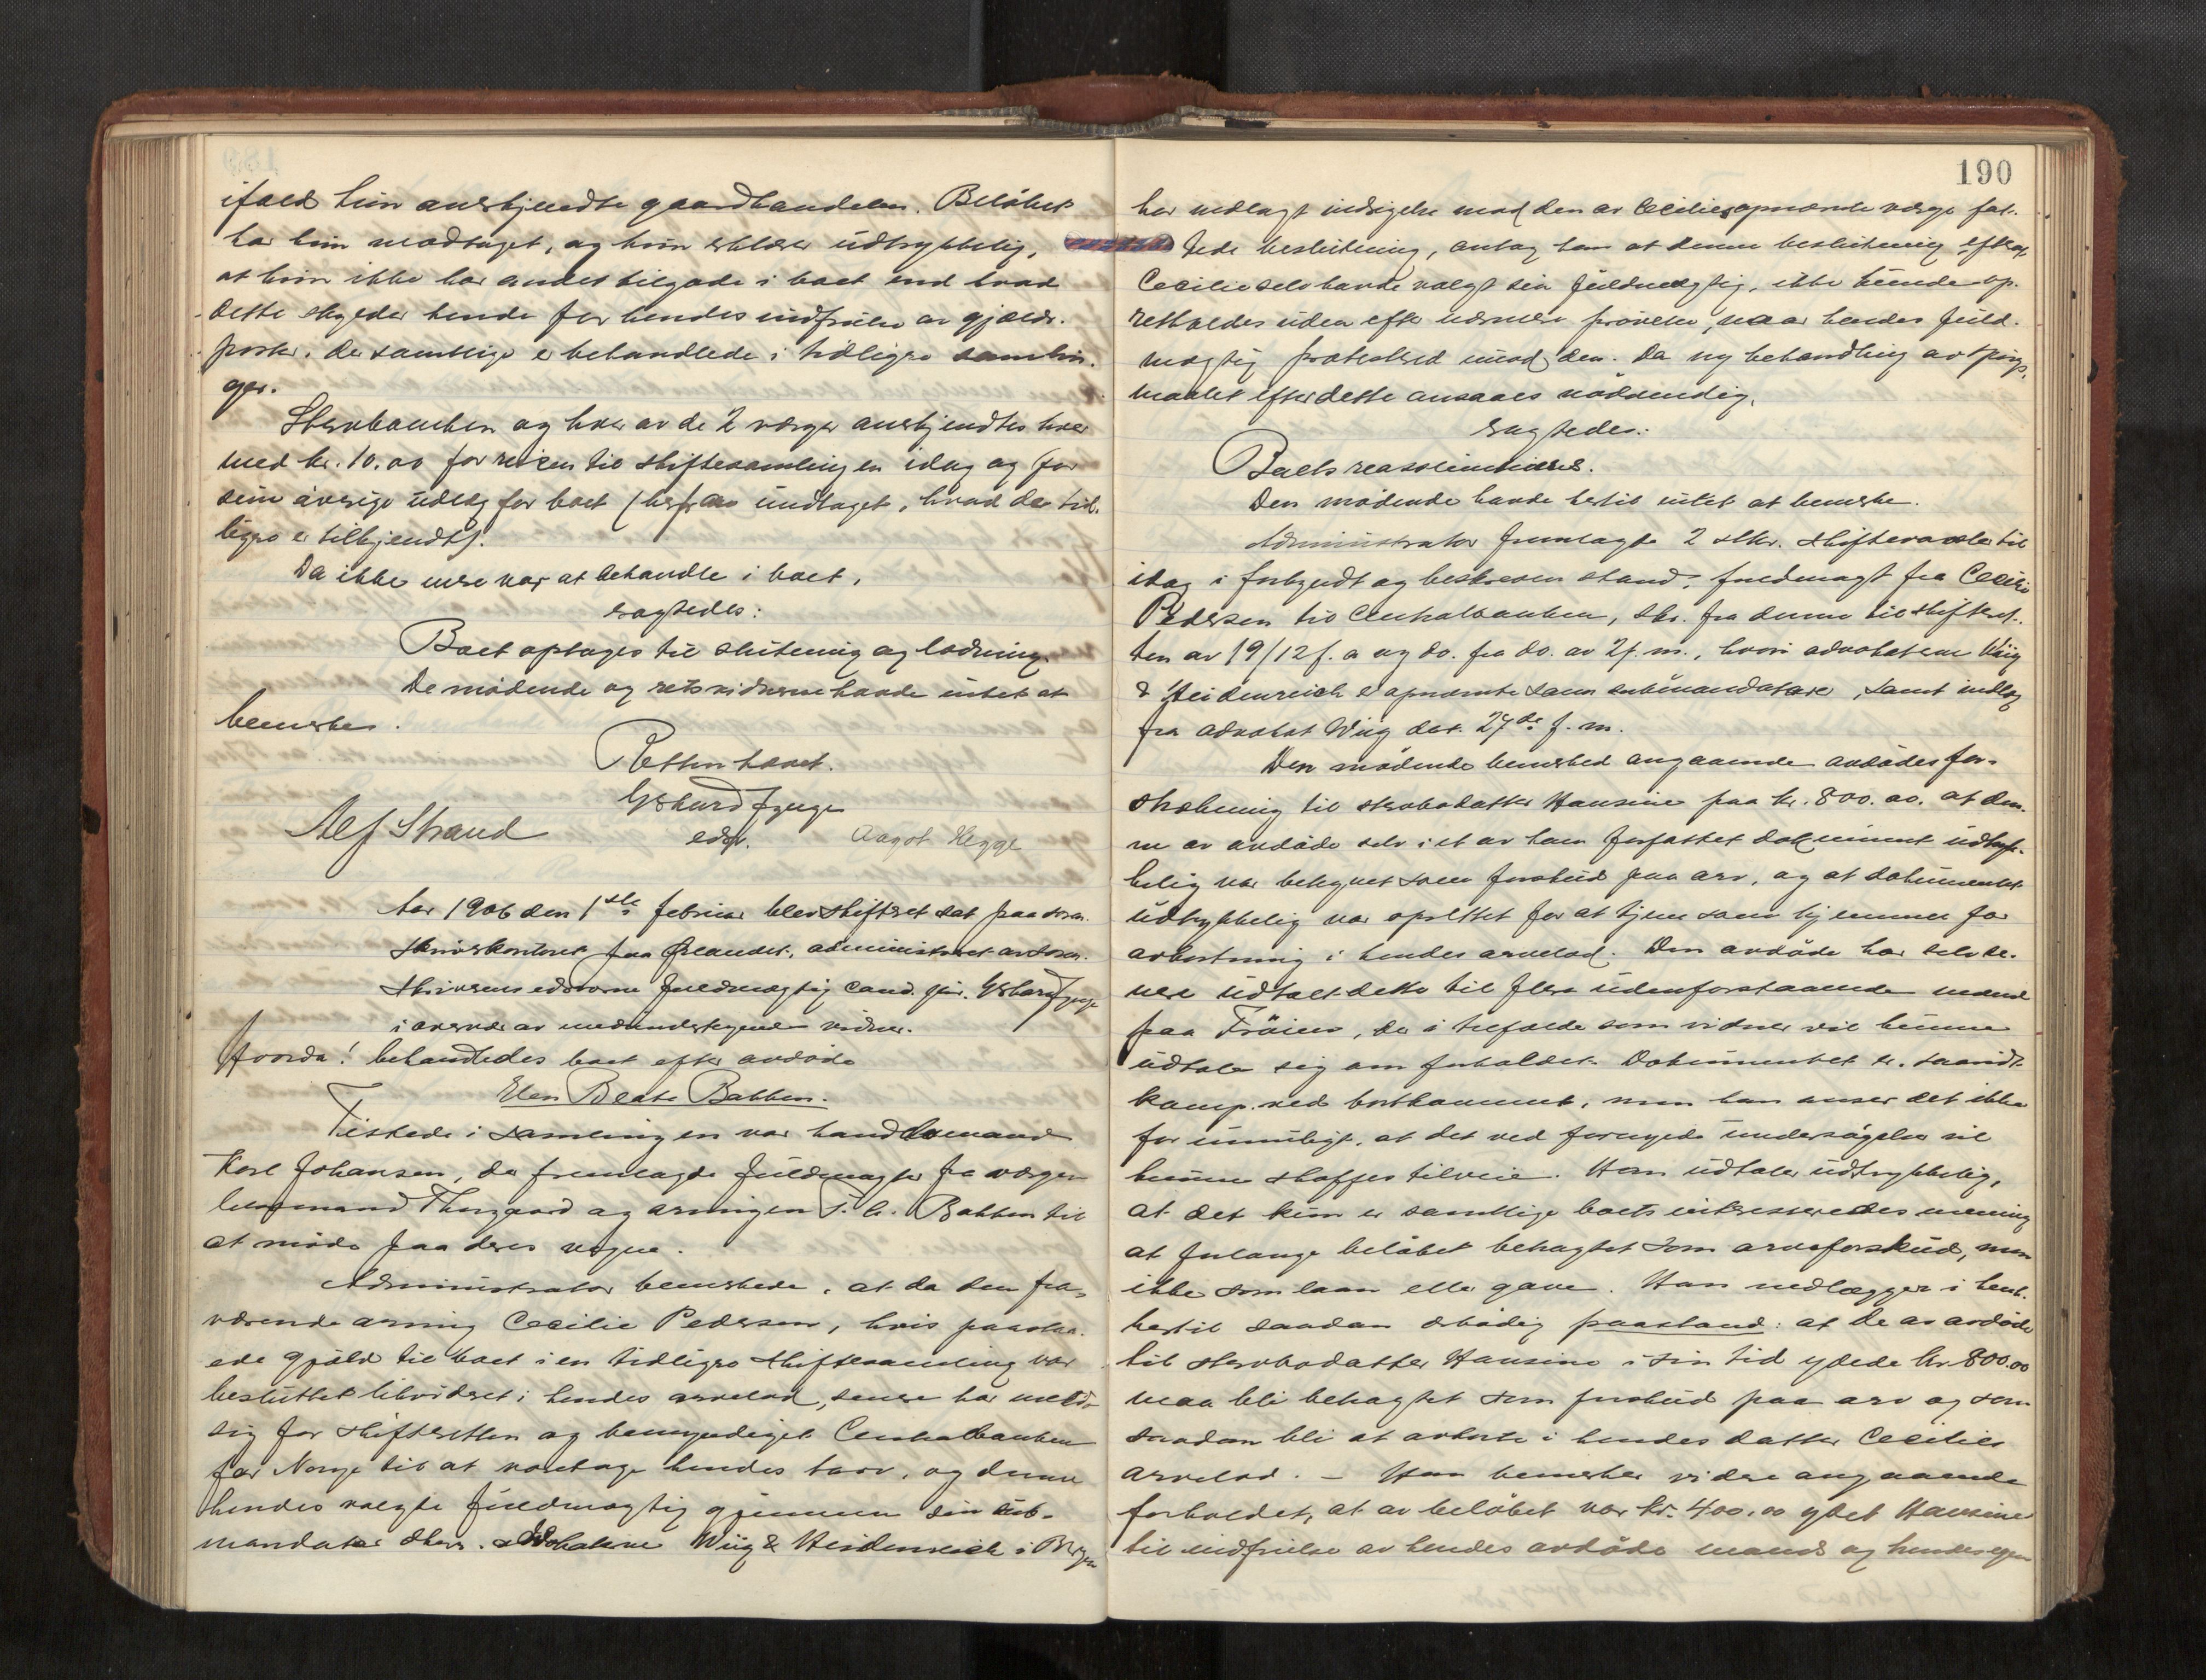 ifald hun anerkjendte gaardhandelen. Beløbet
har hun modtaget, og hun erklærer udtrykkelig,
at hun ikke har andet tilgode i boet end hvad
dette skylder hende for hendes indfrielse av gjælds-
poster, der samtlige er behandlede i tidligere samlin-
ger.
Stervboenken og hver av de 2 værger anerkjendtes hver
med kr. 10.00 for reisen til skiftesamlingen idag og for
sine øvrige udlæg for boet (herfra undtaget, hvad der tid-
ligere er tilkjendt).
Da ikke mere var at behandle i boet,
sagtedes:
Boet optages til slutning og lodning.
De mødende og retsvidnerne havde intet at
bemerke.
Retten hævet.
Gerhard
Alf Strand edsv. Aagot Hegge
Aar 1906 den 1ste februar blev skifteret sat paa soren-
skriverkontoret paa Ørlandet, administreret av soren-
skriverens edsvorne fuldmægtig cand. jur. Gerhard
i overvær av medundertegnede vidner.
Hvorda! behandledes boet efter avdøde
Elen Beate Bakken.
Tilstede i samlingen var handelsmand
Karl Johansen, der fremlagde fuldmagter fra værgen
lensmand Thorgaard og arvingen J. C. Bakken til
at møde paa deres vegne.
Administrator bemerkede, at da den fra-
værende arving Cecilie Pedersen, hvis paastaa-
ede gjæld til boet i en tidligere skiftesamling var
besluttet likvideret i hendes arvelod, senere har meldt
sig for skifteretten og bemyndiget Centralbanken
for Norge til at varetage hendes tarv, og denne
hendes valgte fuldmægtig gjennem sin sub-
mandatar Herr. Advokaterne Wiig & Heidenreich i Bergen
190
har nedlagt indsigelse mod den av Cecilies opnævnte værge fat-
tede beslutning, antog han at denne beslutning efterat
Cecilie selv havde valgt sin fuldmægtig, ikke kunde op-
retholdes uden efter nærmere prøvelse, naar hendes fuld-
mægtig protestered imod den. Da ny behandling av spørgs-
maalet efter dette ansaaes nødvendig,
sagtedes:
Boets reassumeres.
Den mødende havde hertil intet at bemerke.
Administrator fremlagde 2 stkr. skiftevarsler til
idag i forkyndt og beskreven stand, fuldmagt fra Cecilie
Pedersen til Centralbanken, skr. fra denne til skifteret-
ten av 19/12 f. a og do. fra do. av 2 f. m., hvori advokaterne Wiig
& Heidenreich er opnævnte som submandatarer, samt indlæg
fra advokat Wiig dat. 27de f. m.
Den mødende bemerked angaaende avdødes for-
strækning til stervbodatter Hansine paa kr. 800.00. at den-
ne av avdøde selv i et av ham forfattet dokument udtryk-
kelig var betegnet som forskud paa arv, og at dokumentet
udtrykkelig var oprettet for at tjene som hjemmel for
avkortning i hendes arvelod. Den avdøde har selv se-
nere udtalt dette til flere udenforstaaende mænd
paa Frøien, der i tilfælde som vidner vil kunne
udtale sig om forholdet. Dokumentet er saavidt
komp. ved bortkommet, men han anser det ikke
for umuligt, at det ved fornyede undersøgelser vil
kunne skaffes tilveie. Han udtaler udtrykkelig,
at det kun er samtlige boets interesseredes mening
at forlange beløbet betragtet som arveforskud, men
ikke som laan eller gave. Han nedlægger i hen-
hertil saadan ærbødig paastand: at de av avdøde
til stervbodatter Hansine i sin tid ydede kr. 800.00
maa bli betragtet som forskud paa arv og som
saadan bli at avkorte i hendes datter Cecilies
arvelod. – Han bemerker videre angaaende
forholdet, at av beløbet var kr. 400.00 ydet Hansine
til indfrielse av hendes avdøde mands og hendes egen